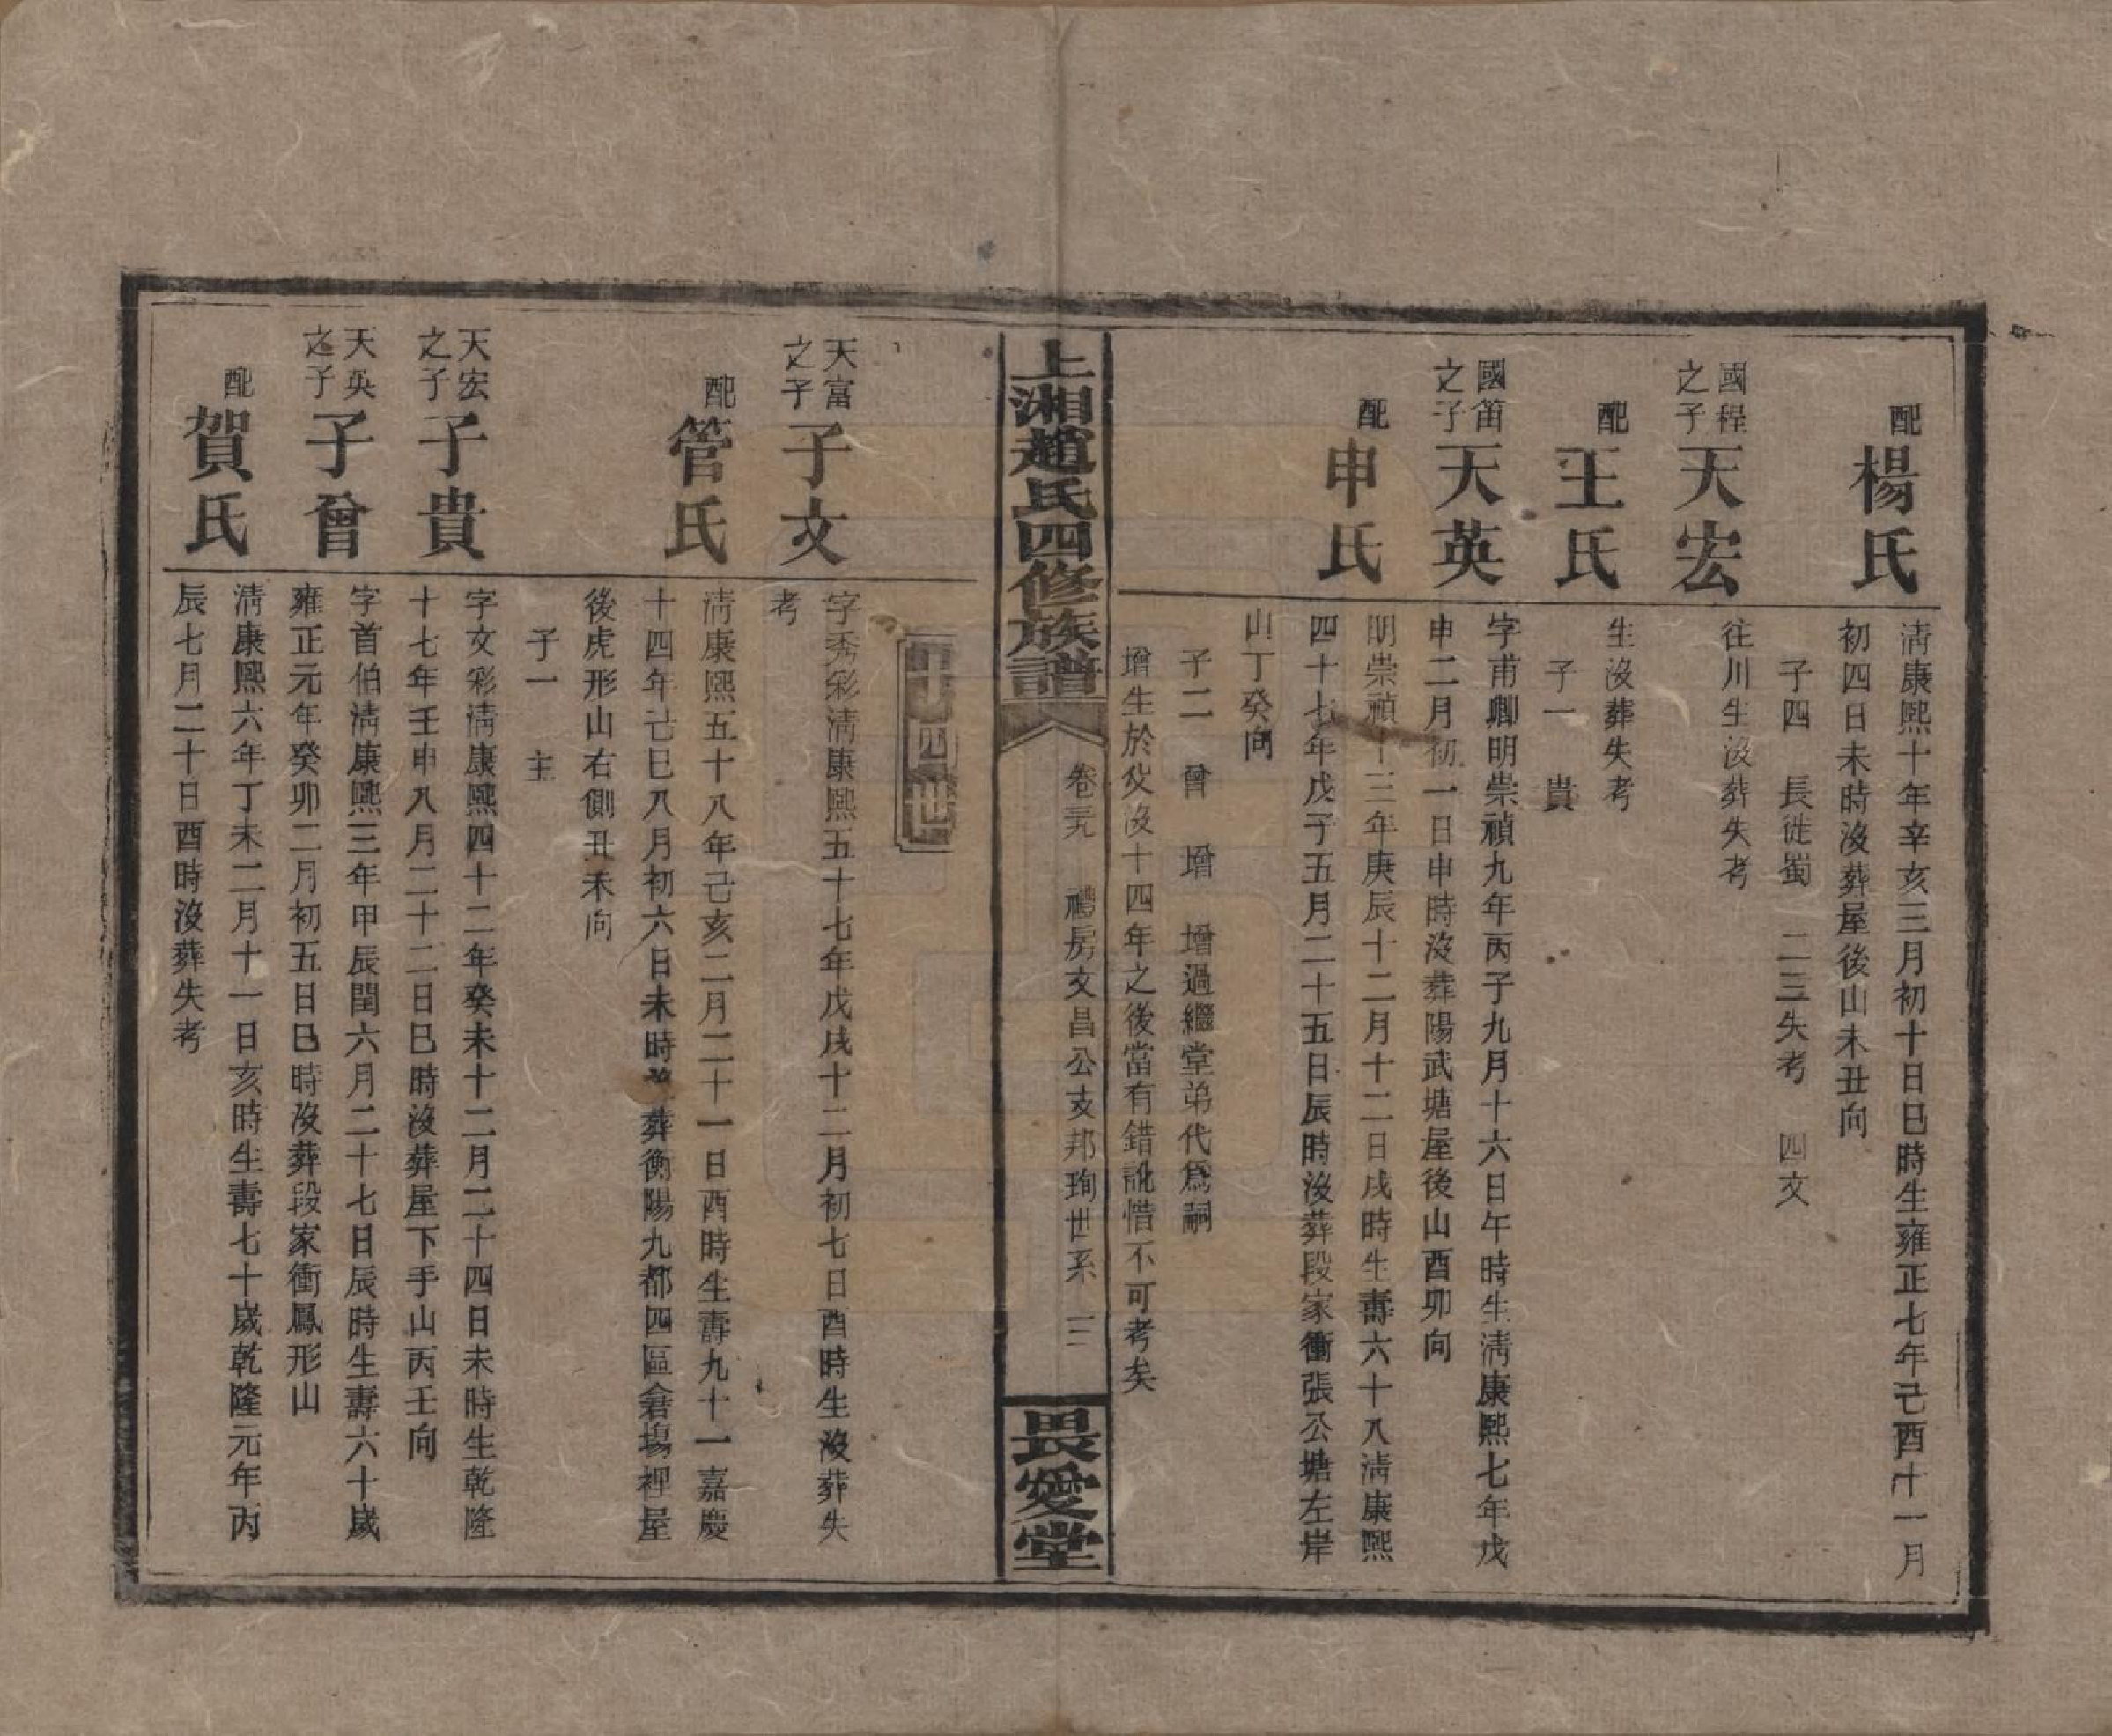 配
楊氏
清康熙十年辛亥三月初十日巳時生雍正七年己酉十一月
初四日未時沒葬屋後山未丑向
子四 長徙蜀 二三失考 四文
國程
之子
天宏
往川生沒葬失考
配
王氏
生沒葬失考
子一 貴
國笛
之子
天英
字甫卿明崇禎九年丙子九月十六日午時生淸康熙七年戊
申二月初一日申時沒葬陽武塘屋後山酉卯向
配
申氏
明崇禎十三年庚辰十二月十二日戌時生壽六十八淸康熙
四十七年戊子五月二十五日辰時沒葬段家衝張公塘左岸
山丁癸向
子二 曾 增 增過繼堂弟代爲嗣
增生於父沒十四年之後當有錯訛惜不可考矣
上湘趙氏四修族譜
卷三九 禮房文昌公支邦珣世系 三
畏愛堂
十四世
天富
之子
子文
字秀彩淸康熙五十七年戊戌十二月初七日酉時生沒葬失
考
配
管氏
淸康熙五十八年己亥二月二十一日酉時生壽九十一嘉慶
十四年己巳八月初六日未時葬衡陽九都四區倉塲裡屋
後虎形山右側丑未向
子一 主
天宏
之子
子貴
字文彩淸康熙四十二年癸未十二月二十四日未時生乾隆
十七年壬申八月二十二日巳時沒葬屋下手山丙壬向
天英
之子
子曾
字首伯淸康熙三年甲辰閏六月二十七日辰時生壽六十歲
雍正元年癸卯二月初五日巳時沒葬段家衝鳳形山
配
賀氏
淸康熙六年丁未二月十一日亥時生壽七十歲乾隆元年丙
辰七月二十日酉時沒葬失考